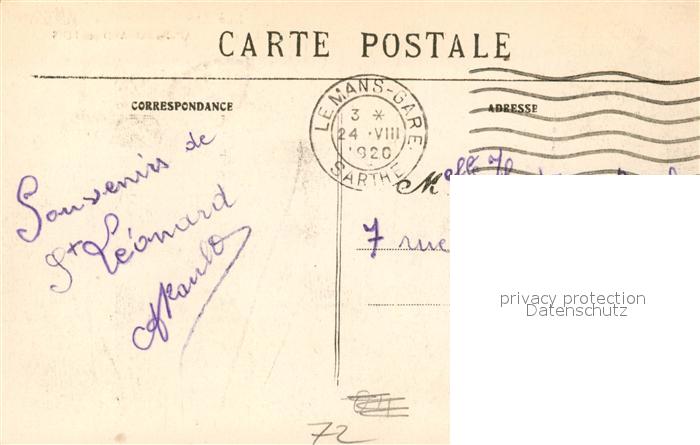 CARTE POSTALE
CORRESPONDANCE
ADRESSE
LE MANS-GARE
3 *
24 · VIII
1920
SARTHE
Souvenirs de
St Léonard
M elle
7 rue
privacy protection
Datenschutz
72